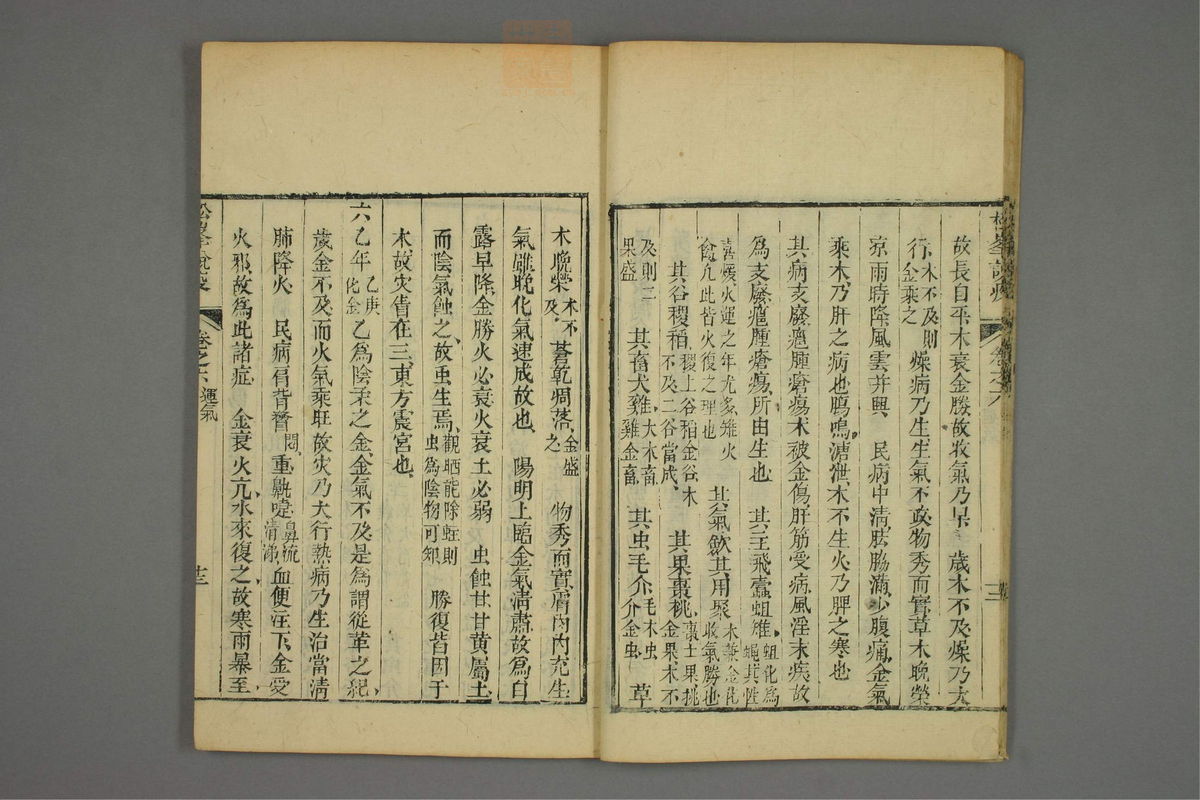 故長自平木衰金勝故收氣乃早 歲木不及燥乃大
行木不及則金乘之 燥病乃生生氣不政物秀而實草木晚榮
涼雨時降風雲并興 民病中清胠脇滿少腹痛金氣
乘木乃肝之病也腸鳴溏泄木不生火乃脾之寒也
其病支廢癰腫瘡瘍木被金傷肝筋受病風淫末疾故
為支廢癰腫瘡瘍所由生也 其主飛蠹蛆雉蛆化為蠅其性
喜煖火運之年尤多雉火禽凡此皆火復之理也 其氣歛其用聚木兼金化收氣勝也
其谷稷稻稷土谷稻金谷木不及二谷當成 其果棗桃棗土果桃金果木不
及則二果盛 其畜犬雞犬木畜雞金畜 其虫毛介毛木虫介金虫 草
木晚榮木不及 蒼乾凋落金盛之 物秀而實膚肉內充生
氣雖晚化氣速成故也 陽明上臨金氣清肅故為白
露早降金勝火必衰火衰土必弱 虫蝕甘甘黄屬土
而陰氣蝕之故虫生焉觀晒能除蛀則虫為陰物可知 勝復皆因于
木故灾眚在三東方震宮也
六乙年乙庚化金 乙為陰柔之金金氣不及是為謂從革之紀
歲金不及而火氣乘旺故灾乃大行熱病乃生治當清
肺降火 民病肩背瞀悶重鼽嚏鼻流清涕血便注下金受
火邪故為此諸症 金衰火亢水來復之故寒雨暴至
卷之六 運氣